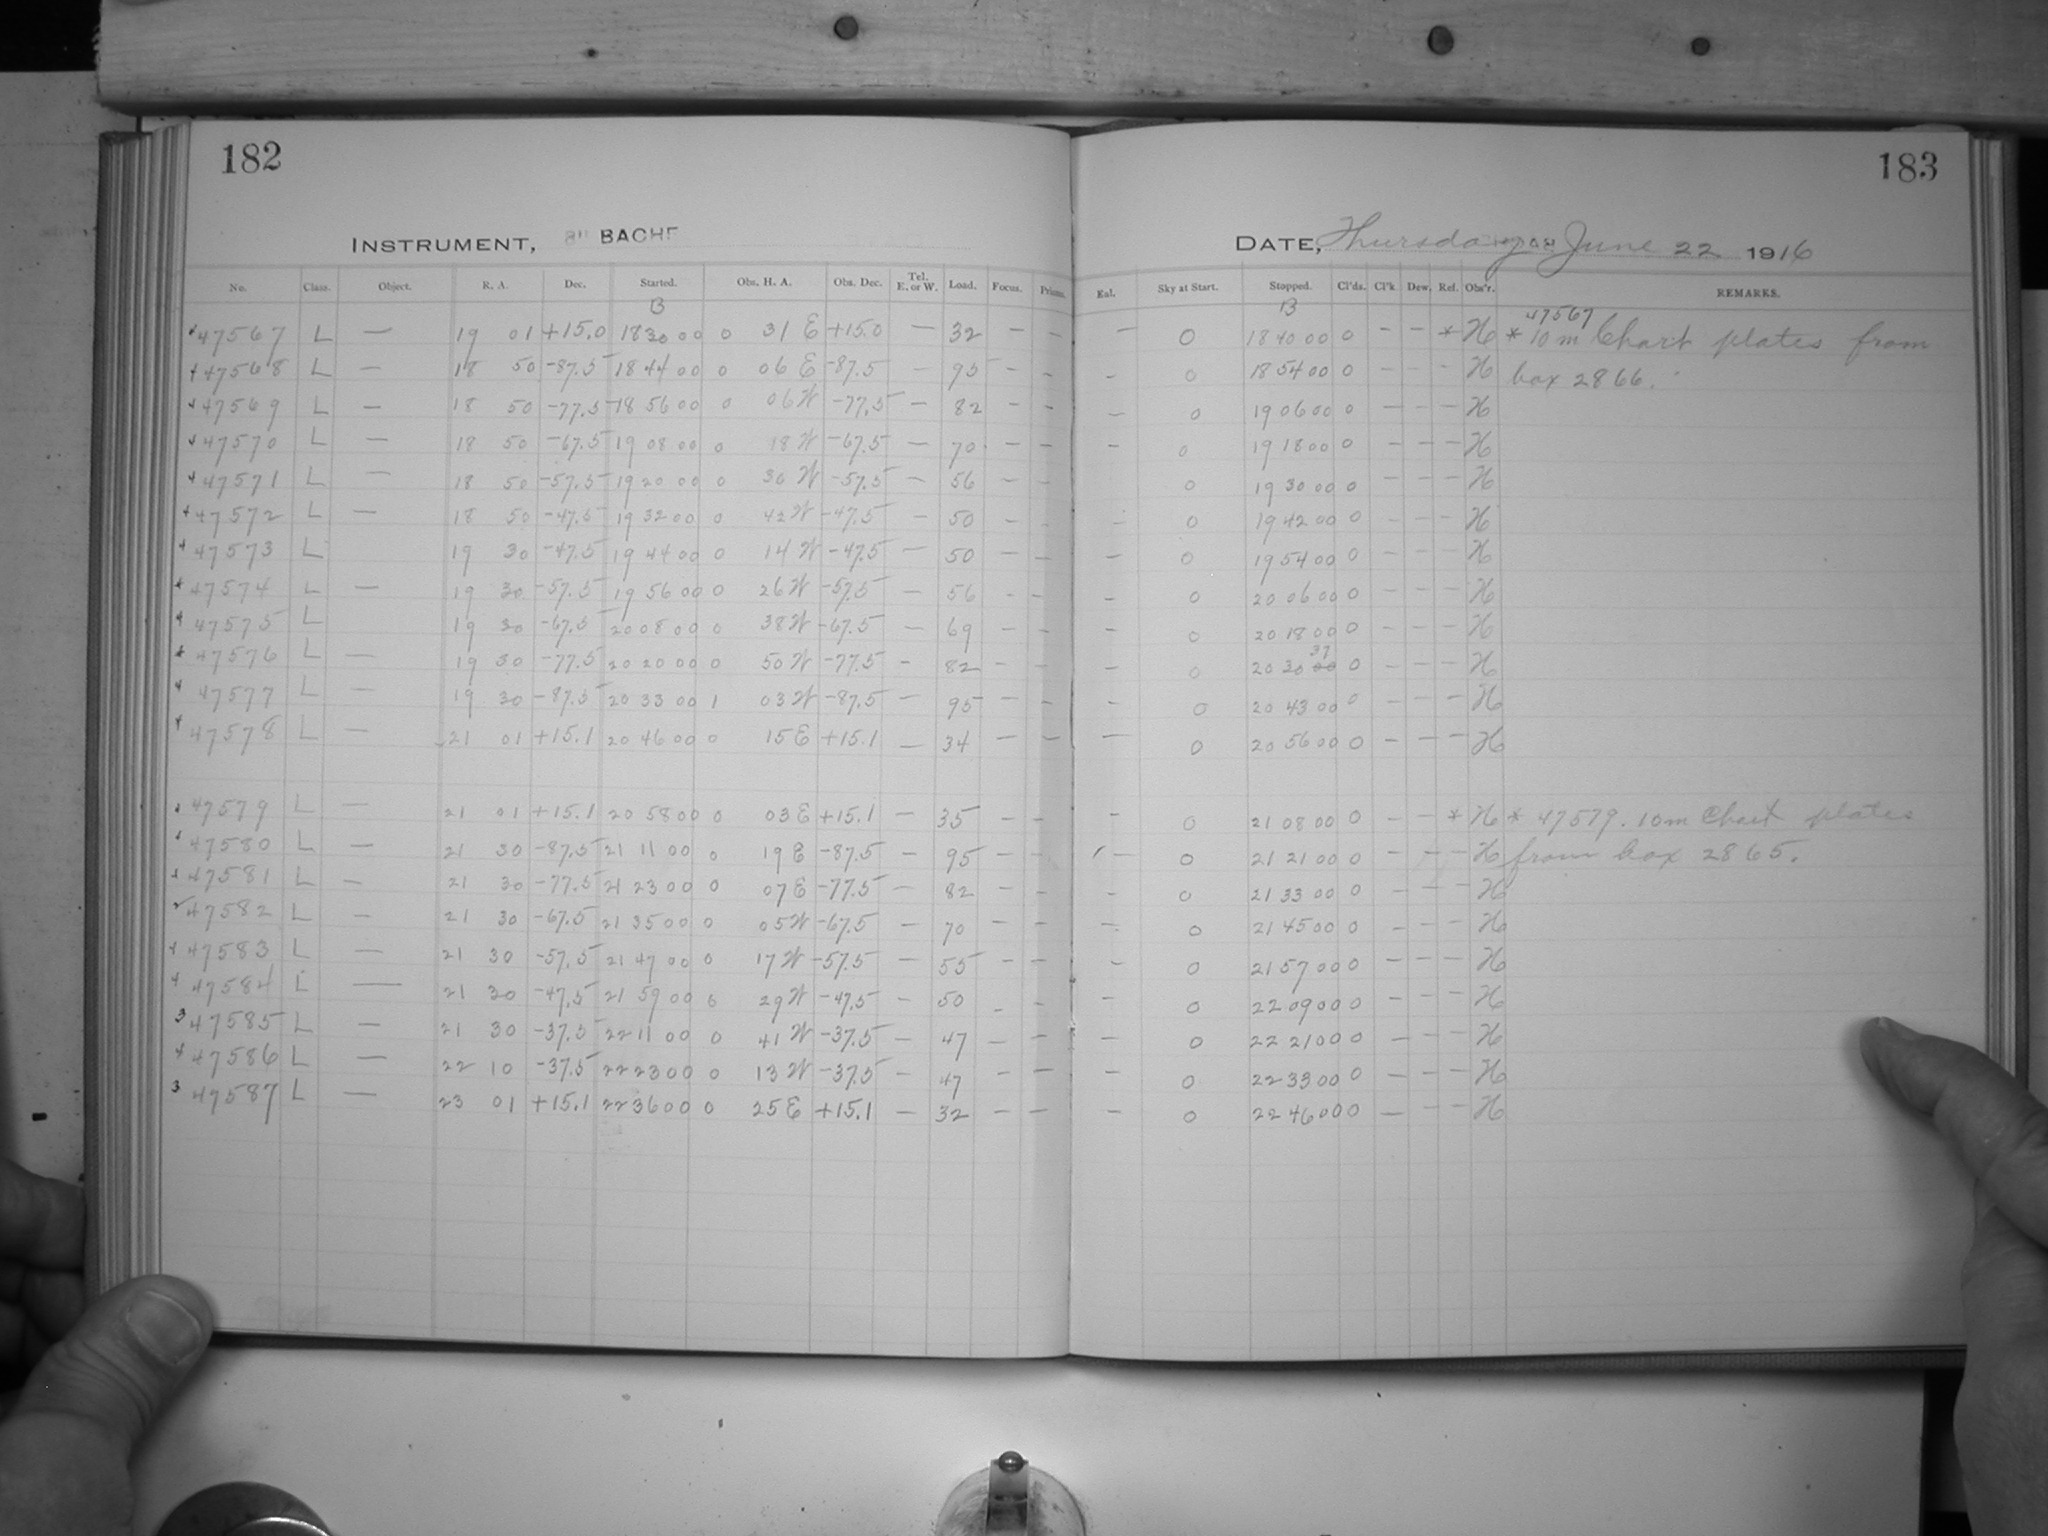 182
183
INSTRUMENT, 8" BACHE
DATE, Thursday June 22 1916
No. Class. Object. R. A. Dec. Started. Obs. H. A. Obs. Dec. Tel. E. or W. Load. Focus. Prisms. Eal. Sky at Start. Stopped. Cl'ds. Cl'k. Dew. Ref. Obs'r. REMARKS.
B B
47567 L — 19 01 +15.0 18 30 00 0 31 E +15.0 — 32 — — — 0 18 40 00 0 — — * H * 47567 10m Chart plates from
47568 L — 18 50 -87.5 18 44 00 0 06 E -87.5 — 95 — — — 0 18 54 00 0 — — - H box 2866.
47569 L — 18 50 -77.5 18 56 00 0 06 W -77.5 — 82 — — — 0 19 06 00 0 — — — H
47570 L — 18 50 -67.5 19 08 00 0 18 W -67.5 — 70 — — — 0 19 18 00 0 — — — H
47571 L — 18 50 -57.5 19 20 00 0 30 W -57.5 — 56 — — 0 19 30 00 0 — — — H
47572 L — 18 50 -47.5 19 32 00 0 42 W -47.5 — 50 — — — 0 19 42 00 0 — — — H
47573 L 19 30 -47.5 19 44 00 0 14 W -47.5 — 50 — — — 0 19 54 00 0 — — — H
47574 L — 19 30 -57.5 19 56 00 0 26 W -57.5 — 56 — — — 0 20 06 00 0 — — — H
47575 L 19 30 -67.5 20 08 00 0 38 W -67.5 — 69 — — — 0 20 18 00 0 — — — H
47576 L — 19 30 -77.5 20 20 00 0 50 W -77.5 — 82 — — — 0 20 30 00 37 0 — — — H
47577 L — 19 30 -87.5 20 33 00 1 03 W -87.5 — 95 — — — 0 20 43 00 0 — — — H
47578 L — 21 01 +15.1 20 46 00 0 15 E +15.1 — 34 — — — 0 20 56 00 0 — — — H
47579 L — 21 01 +15.1 20 58 00 0 03 E +15.1 — 35 — — — 0 21 08 00 0 — — * H * 47579. 10m Chart plates
47580 L — 21 30 -87.5 21 11 00 0 19 E -87.5 — 95 — — — 0 21 21 00 0 — — — H from box 2865.
47581 L — 21 30 -77.5 21 23 00 0 07 E -77.5 — 82 — — — 0 21 33 00 0 — — — H
47582 L — 21 30 -67.5 21 35 00 0 05 W -67.5 — 70 — — — 0 21 45 00 0 — — — H
47583 L — 21 30 -57.5 21 47 00 0 17 W -57.5 — 55 — — — 0 21 57 00 0 — — — H
47584 L — 21 30 -47.5 21 59 00 0 29 W -47.5 — 50 — — — 0 22 09 00 0 — — — H
47585 L — 21 30 -37.5 22 11 00 0 41 W -37.5 — 47 — — — 0 22 21 00 0 — — — H
47586 L — 22 10 -37.5 22 23 00 0 13 W -37.5 — 47 — — — 0 22 33 00 0 — — — H
47587 L — 23 01 +15.1 22 36 00 0 25 E +15.1 — 32 — — — 0 22 46 00 0 — — — H